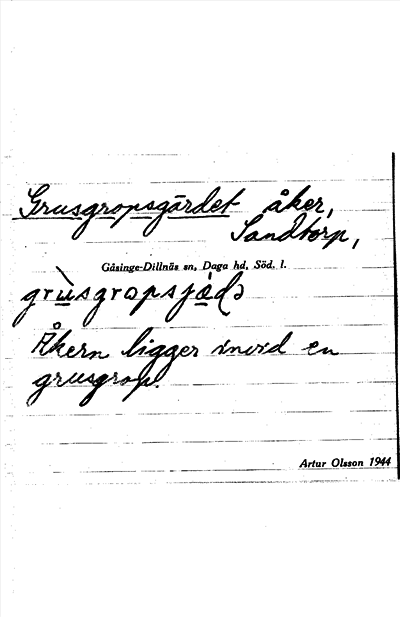 Grusgropsgärdet åker,
Sandtorp,
Gåsinge-Dillnäs sn, Daga hd, Söd. l.
Åkern ligger invid en
grusgrop.
Artur Olsson 1944